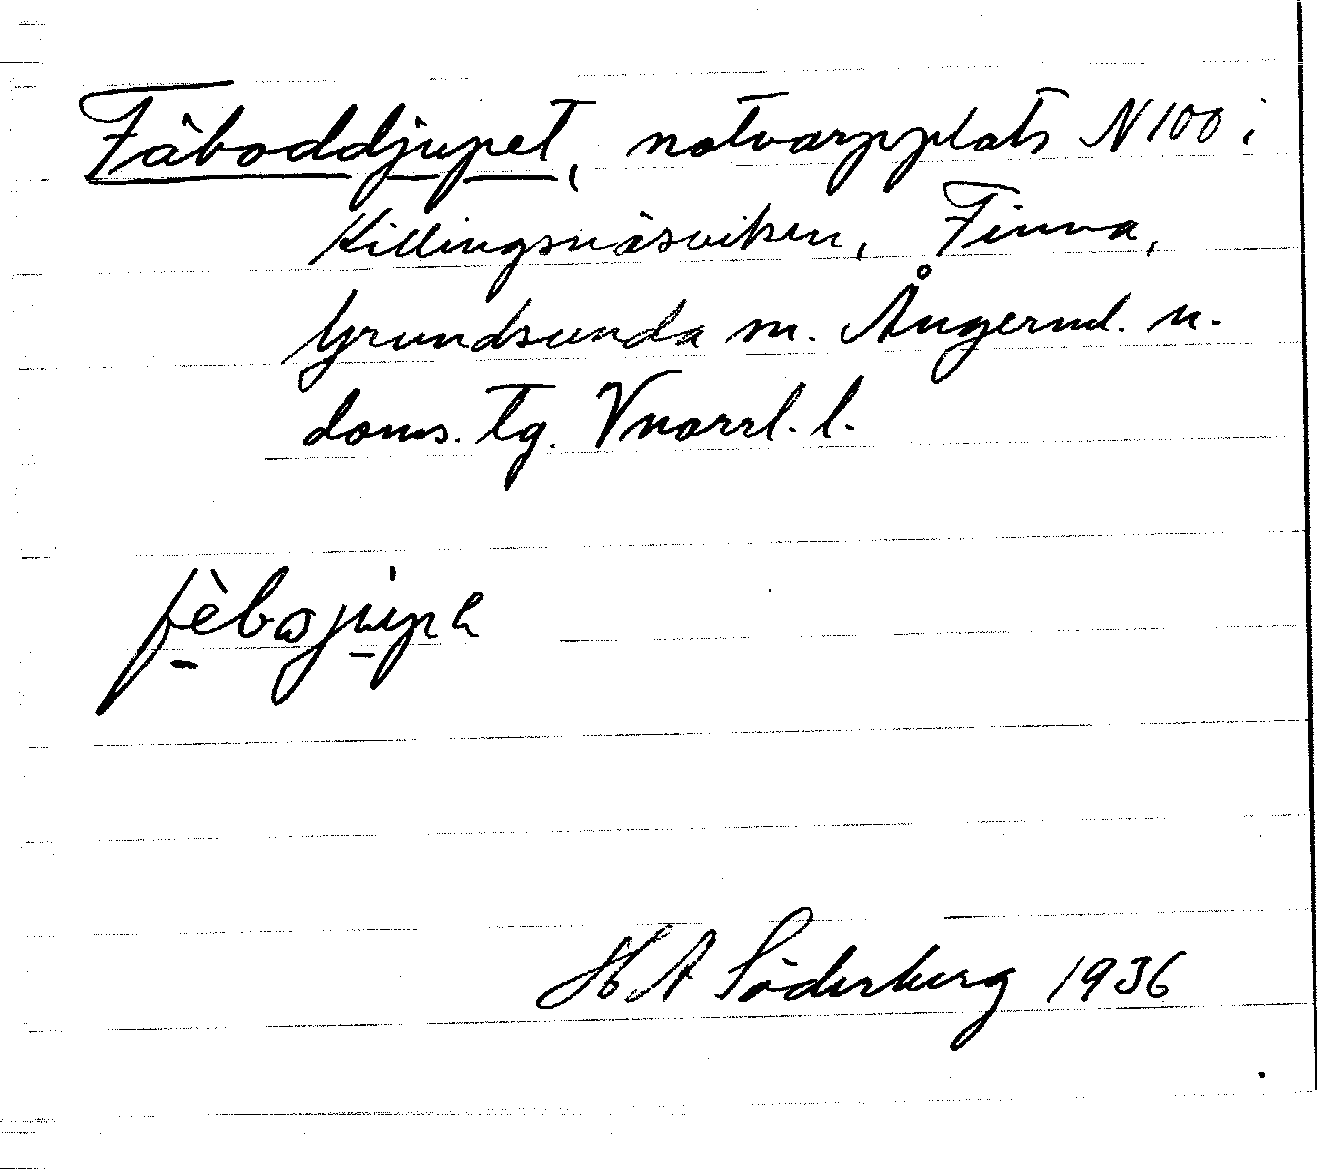 Fäboddjupet, notvarpplats N 100 i
Killingsnäsviken, Finna,
Grundsunda sn. Ångerml. n.
doms. tg. Vnorrl. l.
H A Söderberg 1936